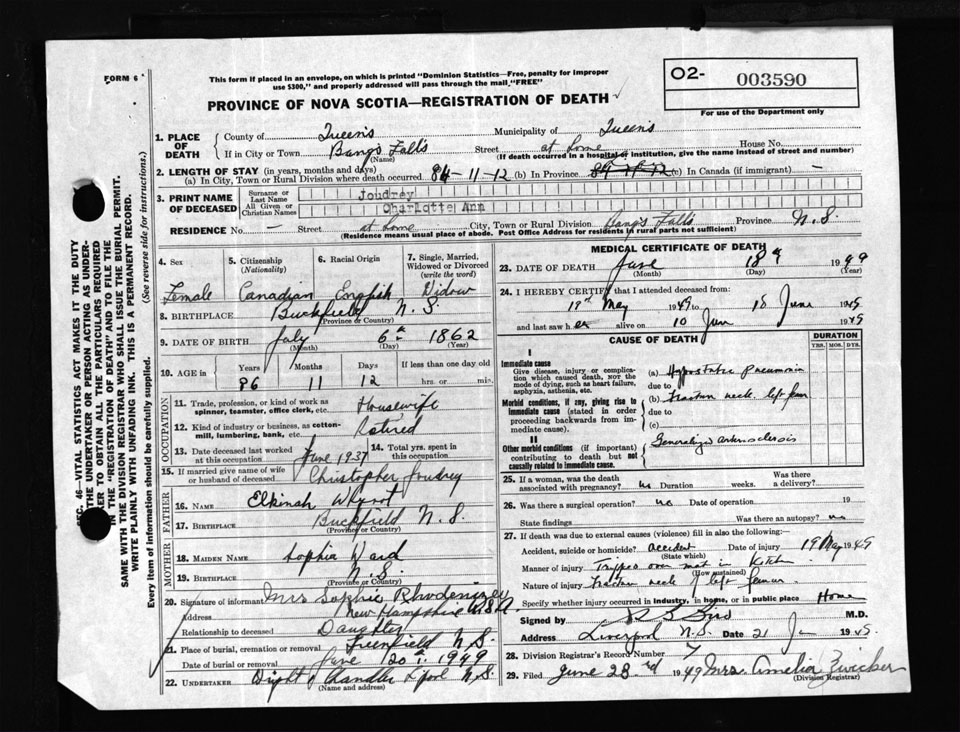 FORM 6
This form if placed in an envelope, on which is printed "Dominion Statistics—Free, penalty for improper
use $300," and properly addressed will pass through the mail "FREE"
PROVINCE OF NOVA SCOTIA—REGISTRATION OF DEATH
O2- 003590
For use of the Department only
SEC. 46—VITAL STATISTICS ACT MAKES IT THE DUTY
THE UNDERTAKER OR PERSON ACTING AS UNDER-
TER TO OBTAIN ALL THE PARTICULARS REQUIRED
IN THE "REGISTRATION OF DEATH" AND TO FILE THE
SAME WITH THE DIVISION REGISTRAR WHO SHALL ISSUE THE BURIAL PERMIT.
WRITE PLAINLY WITH UNFADING INK. THIS IS A PERMANENT RECORD.
Every item of information should be carefully supplied. (See reverse side for instructions.)
1. PLACE OF DEATH
County of Queens Municipality of Queens
If in City or Town Bangs Falls Street at Home House No.
(Name) (If death occurred in a hospital or institution, give the name instead of street and number)
2. LENGTH OF STAY (in years, months and days)
(a) In City, Town or Rural Division where death occurred 86-11-12 (b) In Province (c) In Canada (if immigrant) —
3. PRINT NAME OF DECEASED
Surname or Last Name Joudrey
All Given or Christian Names Charlotte Ann
RESIDENCE No. — Street at Home City, Town or Rural Division Bangs Falls Province N.S.
(Residence means usual place of abode. Post Office Address for residents in rural parts not sufficient)
4. Sex
Female
5. Citizenship (Nationality)
Canadian
6. Racial Origin
English
7. Single, Married, Widowed or Divorced (write the word)
Widow
8. BIRTHPLACE Buckfield N.S.
(Province or Country)
9. DATE OF BIRTH July 6th 1862
(Month) (Day) (Year)
10. AGE in Years Months Days If less than one day old
86 11 12 hrs. or min.
OCCUPATION
11. Trade, profession, or kind of work as spinner, teamster, office clerk, etc. Housewife
12. Kind of industry or business, as cotton-mill, lumbering, bank, etc. Retired
13. Date deceased last worked at this occupation June 1937
14. Total yrs. spent in this occupation
15. If married give name of wife or husband of deceased Christopher Joudrey
FATHER
16. NAME Elkinah Whynot
17. BIRTHPLACE Buckfield N.S.
(Province or Country)
MOTHER
18. MAIDEN NAME Sophia Ward
19. BIRTHPLACE N.S.
(Province or Country)
20. Signature of informant Mrs Sophie Rhodenizer
Address New Hampshire U.S.A
Relationship to deceased Daughter
21. Place of burial, cremation or removal Greenfield N.S.
Date of burial or removal June 20 1949
22. UNDERTAKER Dright & Chandler L'pool N.S.
(Name and address)
MEDICAL CERTIFICATE OF DEATH
23. DATE OF DEATH June 18th 1949
(Month) (Day) (Year)
24. I HEREBY CERTIFY that I attended deceased from:
19th May 1949 to 18 June 1949
and last saw her alive on 10 June 1949
CAUSE OF DEATH
DURATION
YRS. MOS. DYS.
I
Immediate cause
Give disease, injury or complication which caused death, not the mode of dying, such as heart failure, asphyxia, asthenia, etc.
(a) Hypostatic pneumonia
due to
Morbid conditions, if any, giving rise to immediate cause (stated in order proceeding backwards from immediate cause).
(b) Fracture neck left femur
due to
(c)
II
Other morbid conditions (if important) contributing to death but not causally related to immediate cause.
Generalized arteriosclerosis
25. If a woman, was the death associated with pregnancy? no Duration weeks. Was there a delivery?
26. Was there a surgical operation? no Date of operation 19
State findings Was there an autopsy? no
27. If death was due to external causes (violence) fill in also the following:
Accident, suicide or homicide? Accident Date of injury 19 May 1949
(State which)
Manner of injury Tripped over mat in Kitchen
(How sustained)
Nature of injury Fracture neck of left femur
Specify whether injury occurred in industry, in home, or in public place Home
Signed by S Bird M.D.
Address Liverpool N.S. Date 21 1949
28. Division Registrar's Record Number 7
29. Filed June 23rd 1949 Mrs. Amelia Zwicker
(Division Registrar)